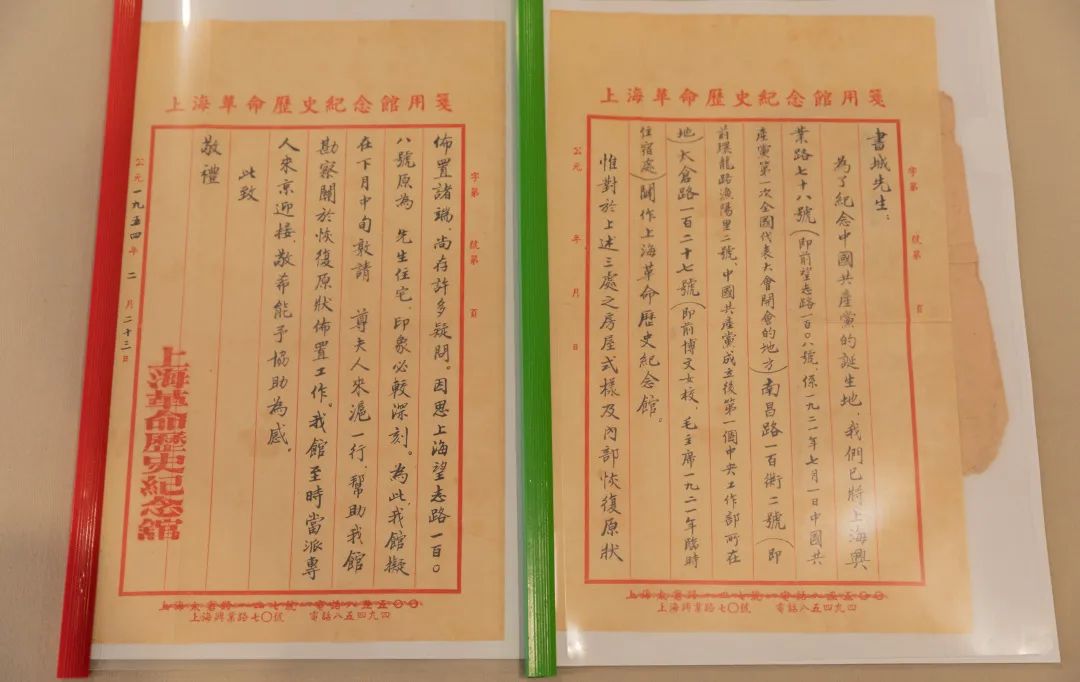 上海革命歷史紀念館用箋
字第 號第 頁
書城先生：
為了紀念中國共產黨的誕生地，我們已將上海興
業路七十八號（即前望志路一百〇八號，係一九二一年七月一日中國共
產黨第一次全國代表大會開會的地方）南昌路一百衖二號（即
前環龍路漁陽里二號，中國共產黨成立後第一個中央工作部所在
地）太倉路一百二十七號（即前博文女校，毛主席一九二一年臨時
住宿處）闢作上海革命歷史紀念館。
惟對於上述三處之房屋式樣及內部恢復原狀
公元 年 月 日
上海興業路七〇號 電話八五四九四
上海革命歷史紀念館用箋
字第 號第 頁
佈置諸端，尚存許多疑問。因思上海望志路一百〇
八號原為 先生住宅，印象必較深刻。為此，我館擬
在下月中旬敦請 尊夫人来滬一行，幫助我館
勘察關於恢復原狀佈置工作，我館至時當派專
人来京迎接，敬希能予協助為感。
此致
敬禮
上海革命歷史紀念館
公元一九五四年二月二十三日
上海興業路七〇號 電話八五四九四